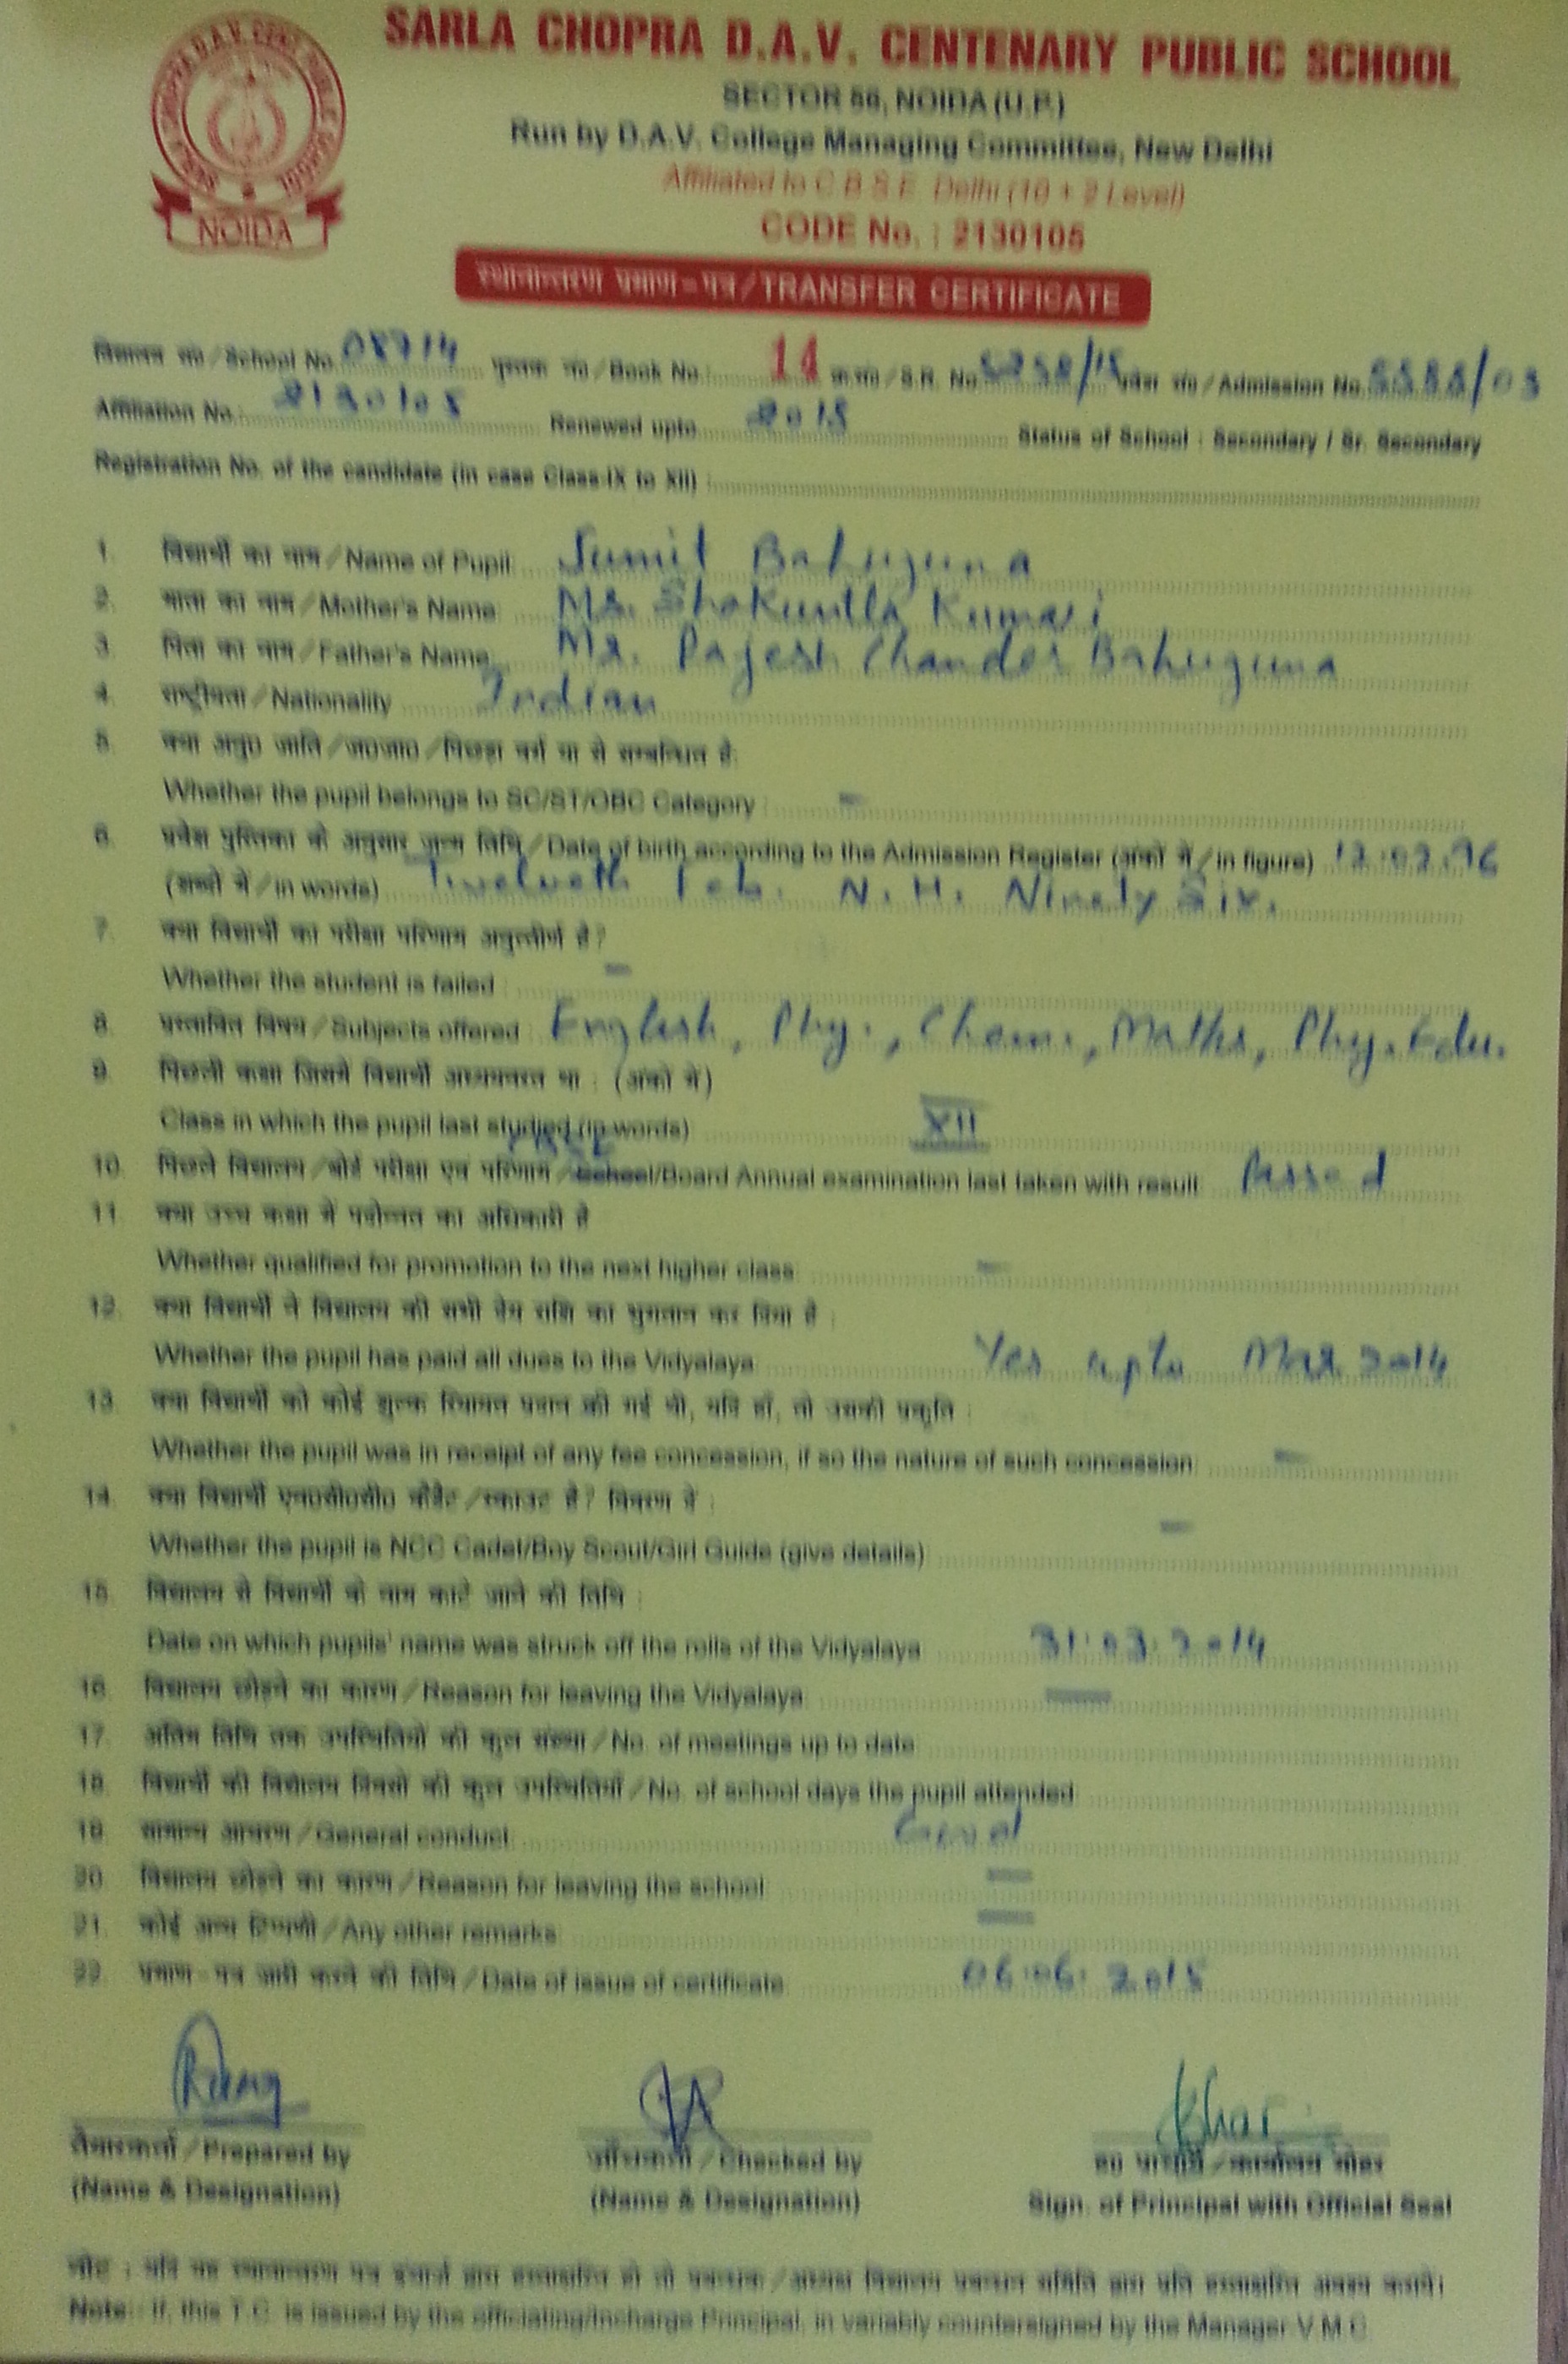 SARLA CHOPRA D.A.V. CENTENARY PUBLIC SCHOOL
SECTOR 56, NOIDA (U.P.)
Run by D.A.V. College Managing Committee, New Delhi
Affiliated to C.B.S.E. Delhi (10 + 2 Level)
CODE No. : 2130105
NOIDA
स्थानान्तरण प्रमाण-पत्र / TRANSFER CERTIFICATE
विद्यालय सं० / School No. 08714 पुस्तक सं० / Book No. 14 क्र०सं० / S.R. No. प्रवेश सं० / Admission No.
Affiliation No. 2130105 Renewed upto 2015 Status of School : Secondary / Sr. Secondary
Registration No. of the candidate (in case Class-IX to XII)
1. विद्यार्थी का नाम / Name of Pupil Sumit Bahuguna
2. माता का नाम / Mother's Name Ms. Shakuntla Kumari
3. पिता का नाम / Father's Name Mr. Rajesh Chander Bahuguna
4. राष्ट्रीयता / Nationality Indian
5. क्या अनु० जाति / ज०जा० / पिछड़ा वर्ग या से सम्बन्धित है
Whether the pupil belongs to SC/ST/OBC Category -
6. प्रवेश पुस्तिका के अनुसार जन्म तिथि / Date of birth according to the Admission Register (अंकों में / in figure) 12.02.96
(शब्दों में / in words) Twelveth Feb. N. H. Ninety Six.
7. क्या विद्यार्थी का परीक्षा परिणाम अनुत्तीर्ण है?
Whether the student is failed -
8. प्रस्तावित विषय / Subjects offered English, Phy., Chem., Maths, Phy. Edu.
9. पिछली कक्षा जिसमें विद्यार्थी अध्ययनरत था : (अंकों में)
Class in which the pupil last studied (in words) XII
10. पिछले विद्यालय / बोर्ड परीक्षा एवं परिणाम / School/Board Annual examination last taken with result Passed
11. क्या उच्च कक्षा में पदोन्नत का अधिकारी है
Whether qualified for promotion to the next higher class -
12. क्या विद्यार्थी ने विद्यालय की सभी देय राशि का भुगतान कर दिया है :
Whether the pupil has paid all dues to the Vidyalaya Yes upto Mar 2014
13. क्या विद्यार्थी को कोई शुल्क रियायत प्रदान की गई थी, यदि हाँ, तो उसकी प्रकृति :
Whether the pupil was in receipt of any fee concession, if so the nature of such concession -
14. क्या विद्यार्थी एन०सी०सी० कैडेट / स्काउट है? विवरण दें :
Whether the pupil is NCC Cadet/Boy Scout/Girl Guide (give details) -
15. विद्यालय से विद्यार्थी के नाम काटे जाने की तिथि :
Date on which pupils' name was struck off the rolls of the Vidyalaya 31.03.2014
16. विद्यालय छोड़ने का कारण / Reason for leaving the Vidyalaya -
17. अंतिम तिथि तक उपस्थितियों की कुल संख्या / No. of meetings up to date
18. विद्यार्थी की विद्यालय दिवसों की कुल उपस्थितियाँ / No. of school days the pupil attended
19. सामान्य आचरण / General conduct Good
20. विद्यालय छोड़ने का कारण / Reason for leaving the school -
21. कोई अन्य टिप्पणी / Any other remarks -
22. प्रमाण-पत्र जारी करने की तिथि / Date of issue of certificate 06.06.2015
तैयारकर्ता / Prepared by
(Name & Designation)
जाँचकर्ता / Checked by
(Name & Designation)
Sign. of Principal with Official Seal
Note : If, this T.C. is issued by the officiating/Incharge Principal, in variably countersigned by the Manager V.M.C.